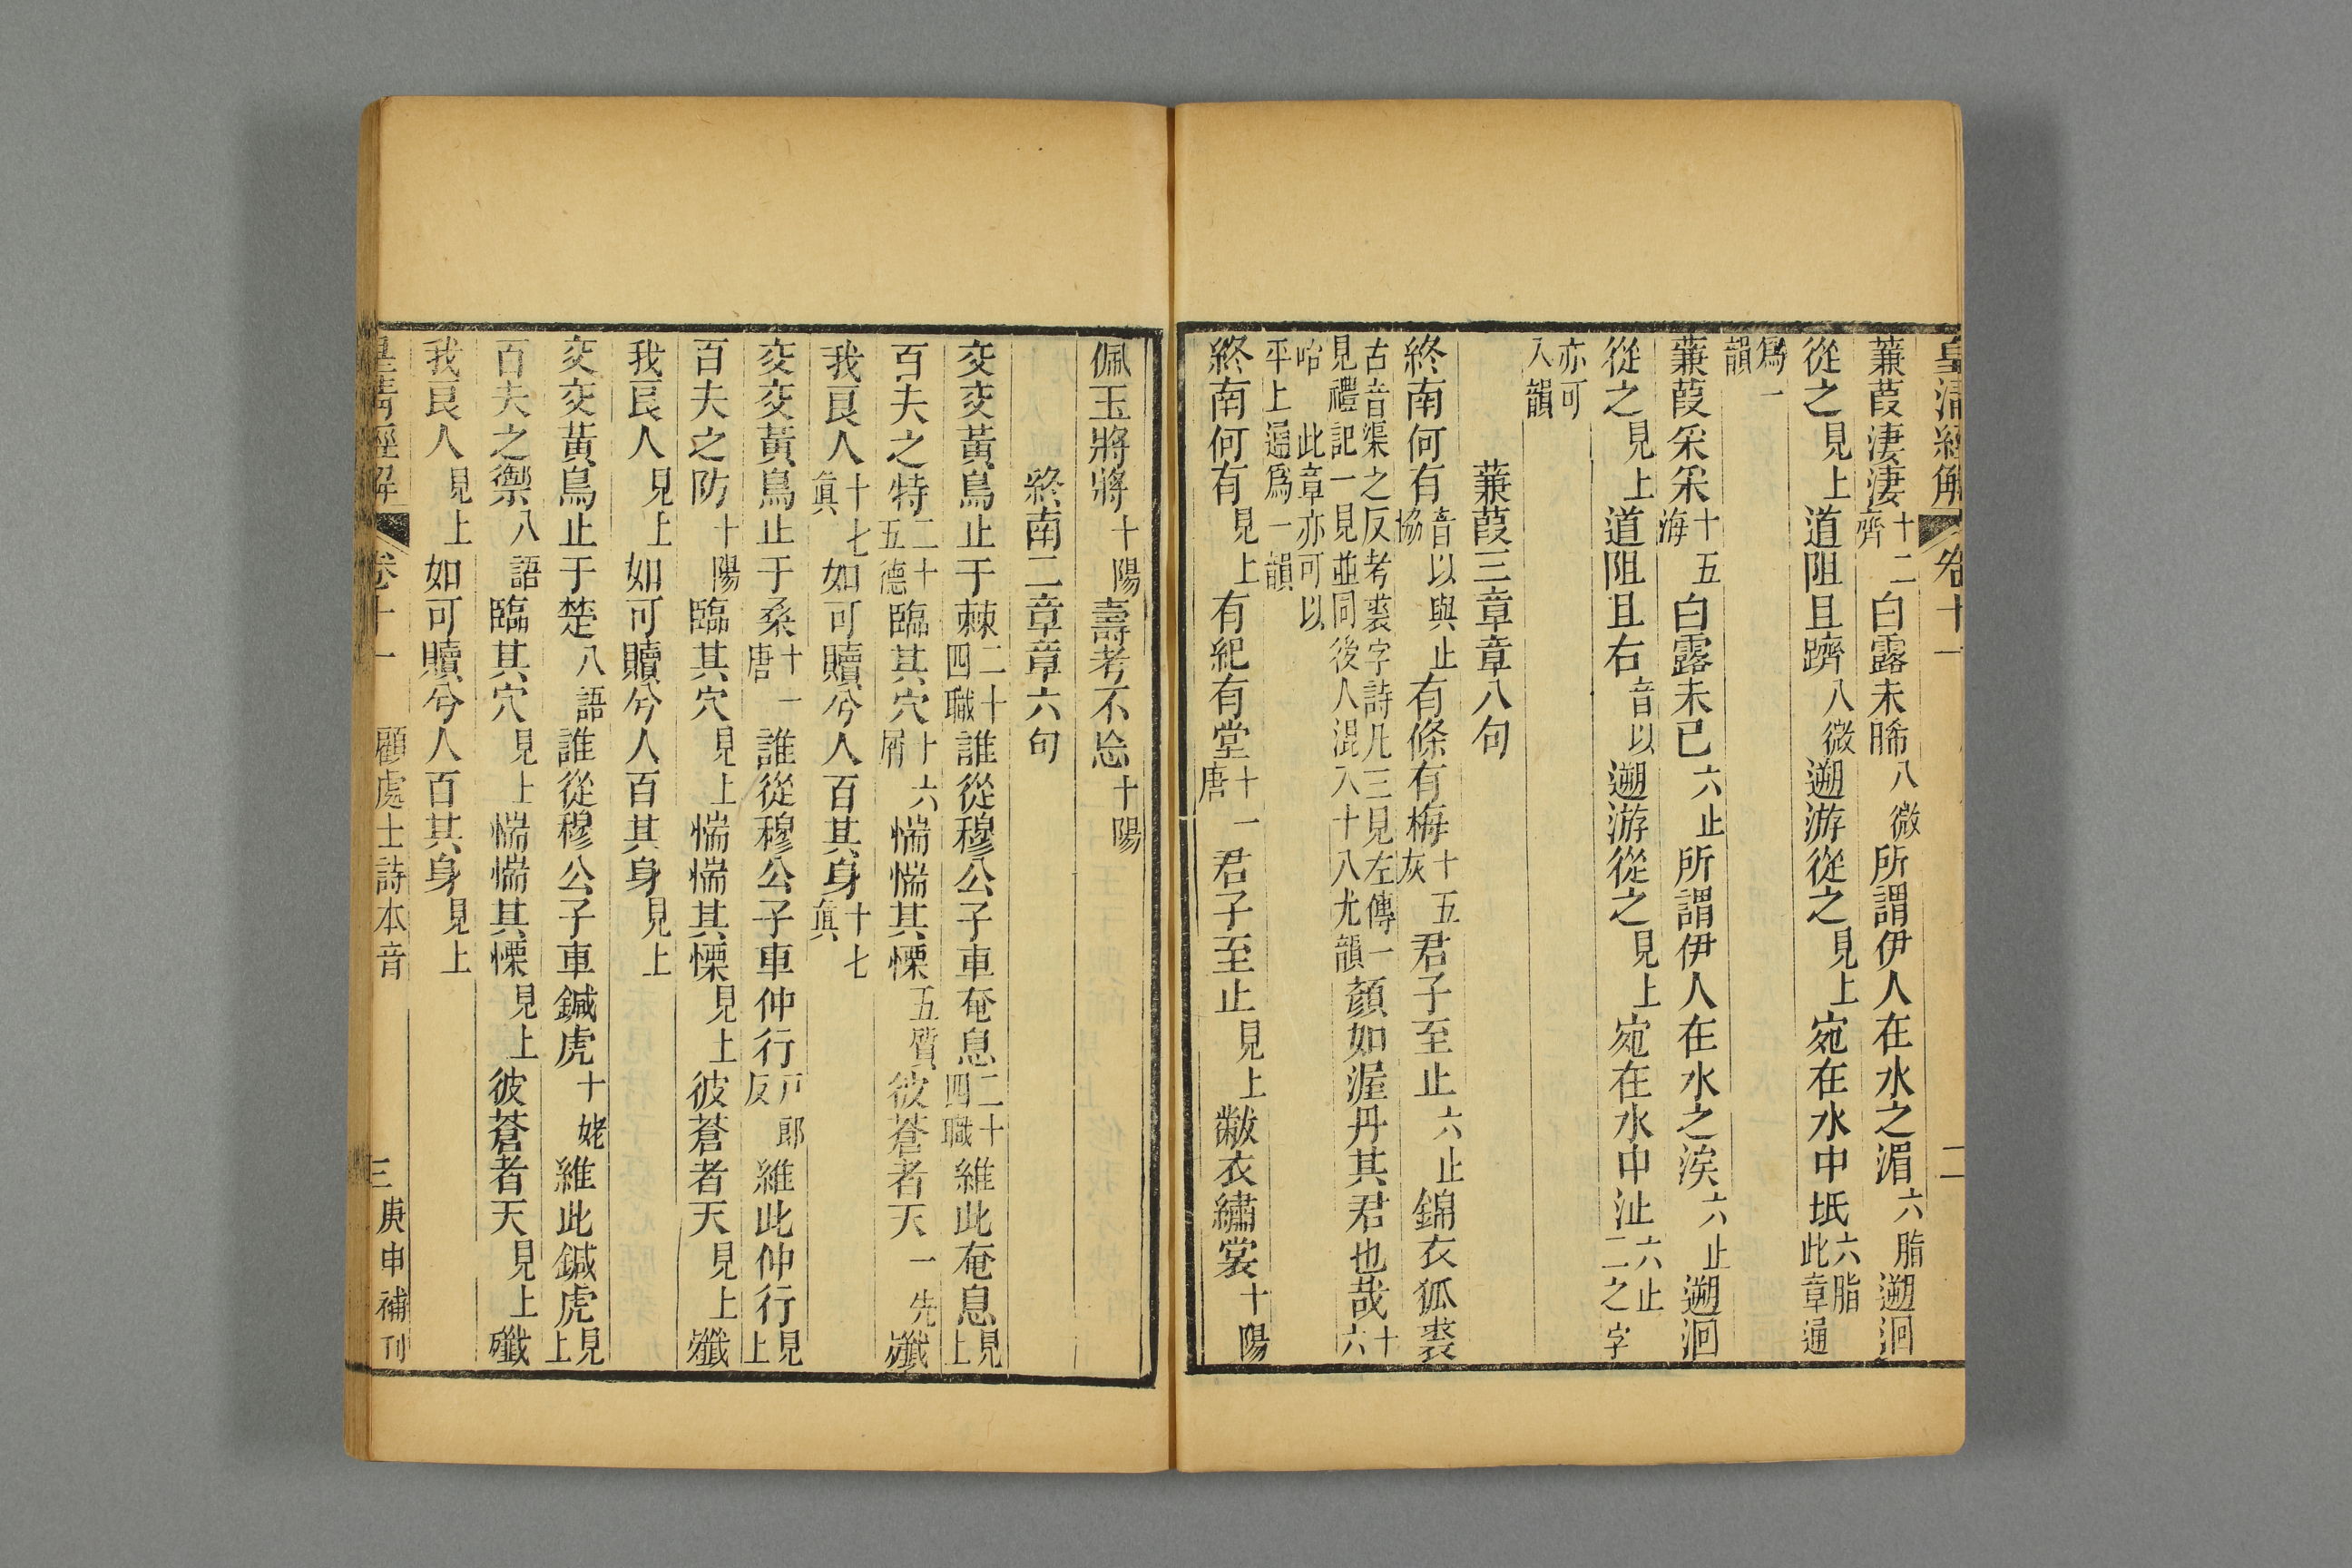 皇清經解 卷十一 二
蒹葭淒淒十二齊白露未晞八微所謂伊人在水之湄六脂遡洄
從之見上道阻且躋八微遡游從之見上宛在水中坻六脂此章通
爲一韻
蒹葭采采十五海白露未已六止所謂伊人在水之涘六止遡洄
從之見上道阻且右音以遡游從之見上宛在水中沚六止二之字
亦可入韻
蒹葭三章章八句
終南何有音以與止協有條有梅十五灰君子至止六止錦衣狐裘
古音渠之反考裘字詩凡三見左傳一見禮記一見並同後人混入十八尤韻顏如渥丹其君也哉十六
咍此章亦可以平上通爲一韻
終南何有見上有紀有堂十一唐君子至止見上黻衣繡裳十陽
佩玉將將十陽壽考不忘十陽
終南二章章六句
交交黃鳥止于棘二十四職誰從穆公子車奄息二十四職維此奄息見上
百夫之特二十五德臨其穴十六屑惴惴其慄五質彼蒼者天一先殲
我良人十七眞如可贖兮人百其身十七眞
交交黃鳥止于桑十一唐誰從穆公子車仲行戸郎反維此仲行見上
百夫之防十陽臨其穴見上惴惴其慄見上彼蒼者天見上殲
我良人見上如可贖兮人百其身見上
交交黃鳥止于楚八語誰從穆公子車鍼虎十姥維此鍼虎見上
百夫之禦八語臨其穴見上惴惴其慄見上彼蒼者天見上殲
我良人見上如可贖兮人百其身見上
皇清經解 卷十一 顧處士詩本音 三 庚申補刊